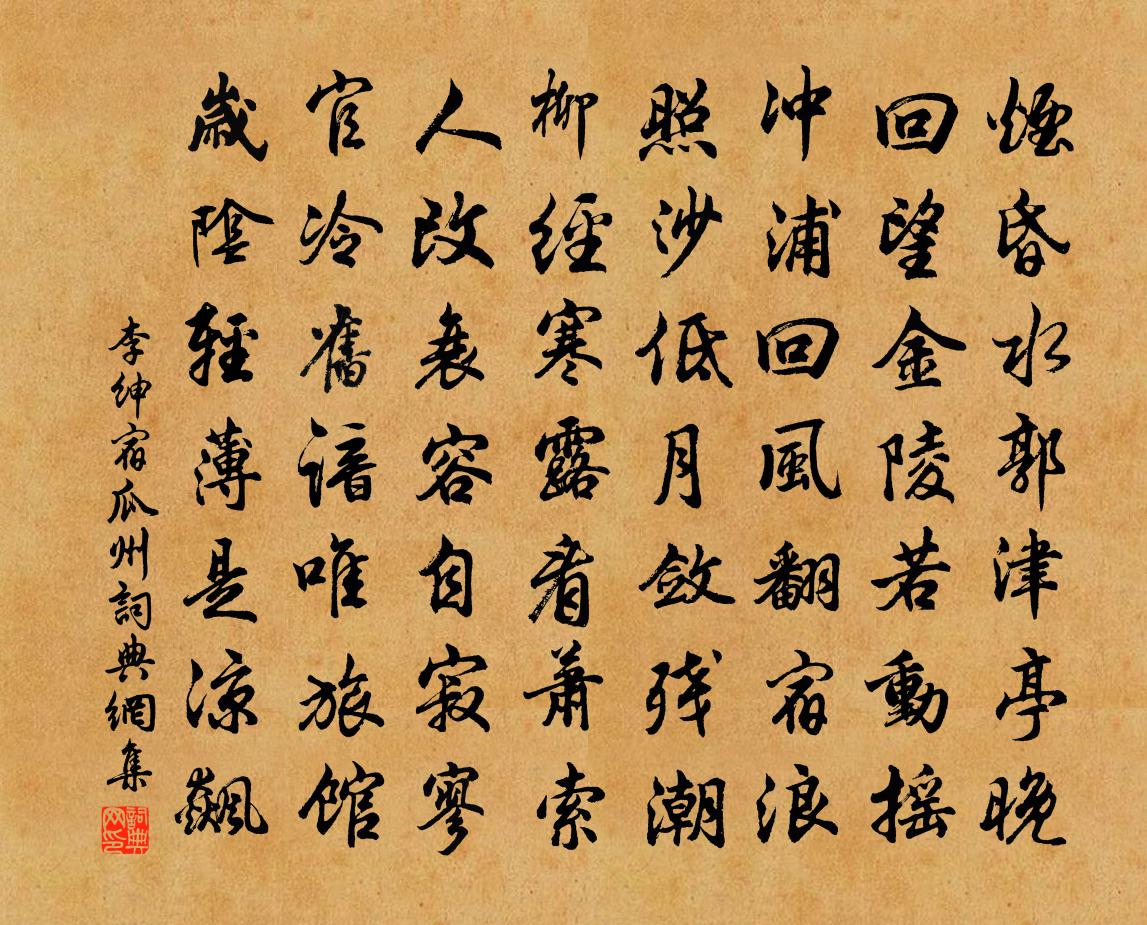 煙昏水郭津亭晚
回望金陵若動搖
冲浦回風翻宿浪
照沙低月斂残潮
柳經寒露看蕭索
人改衰容自寂寥
官冷舊諳唯旅館
歲陰輕薄是涼飆
李紳宿瓜州詞典網集
詞典網印